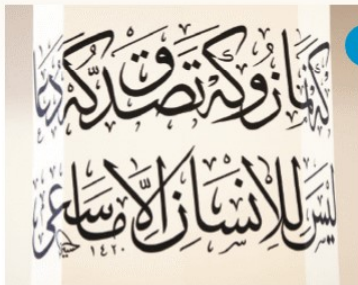 كه نماز و كه تصدق كه دعا
ليس للانسان الا ما سعى
١٤٢٠